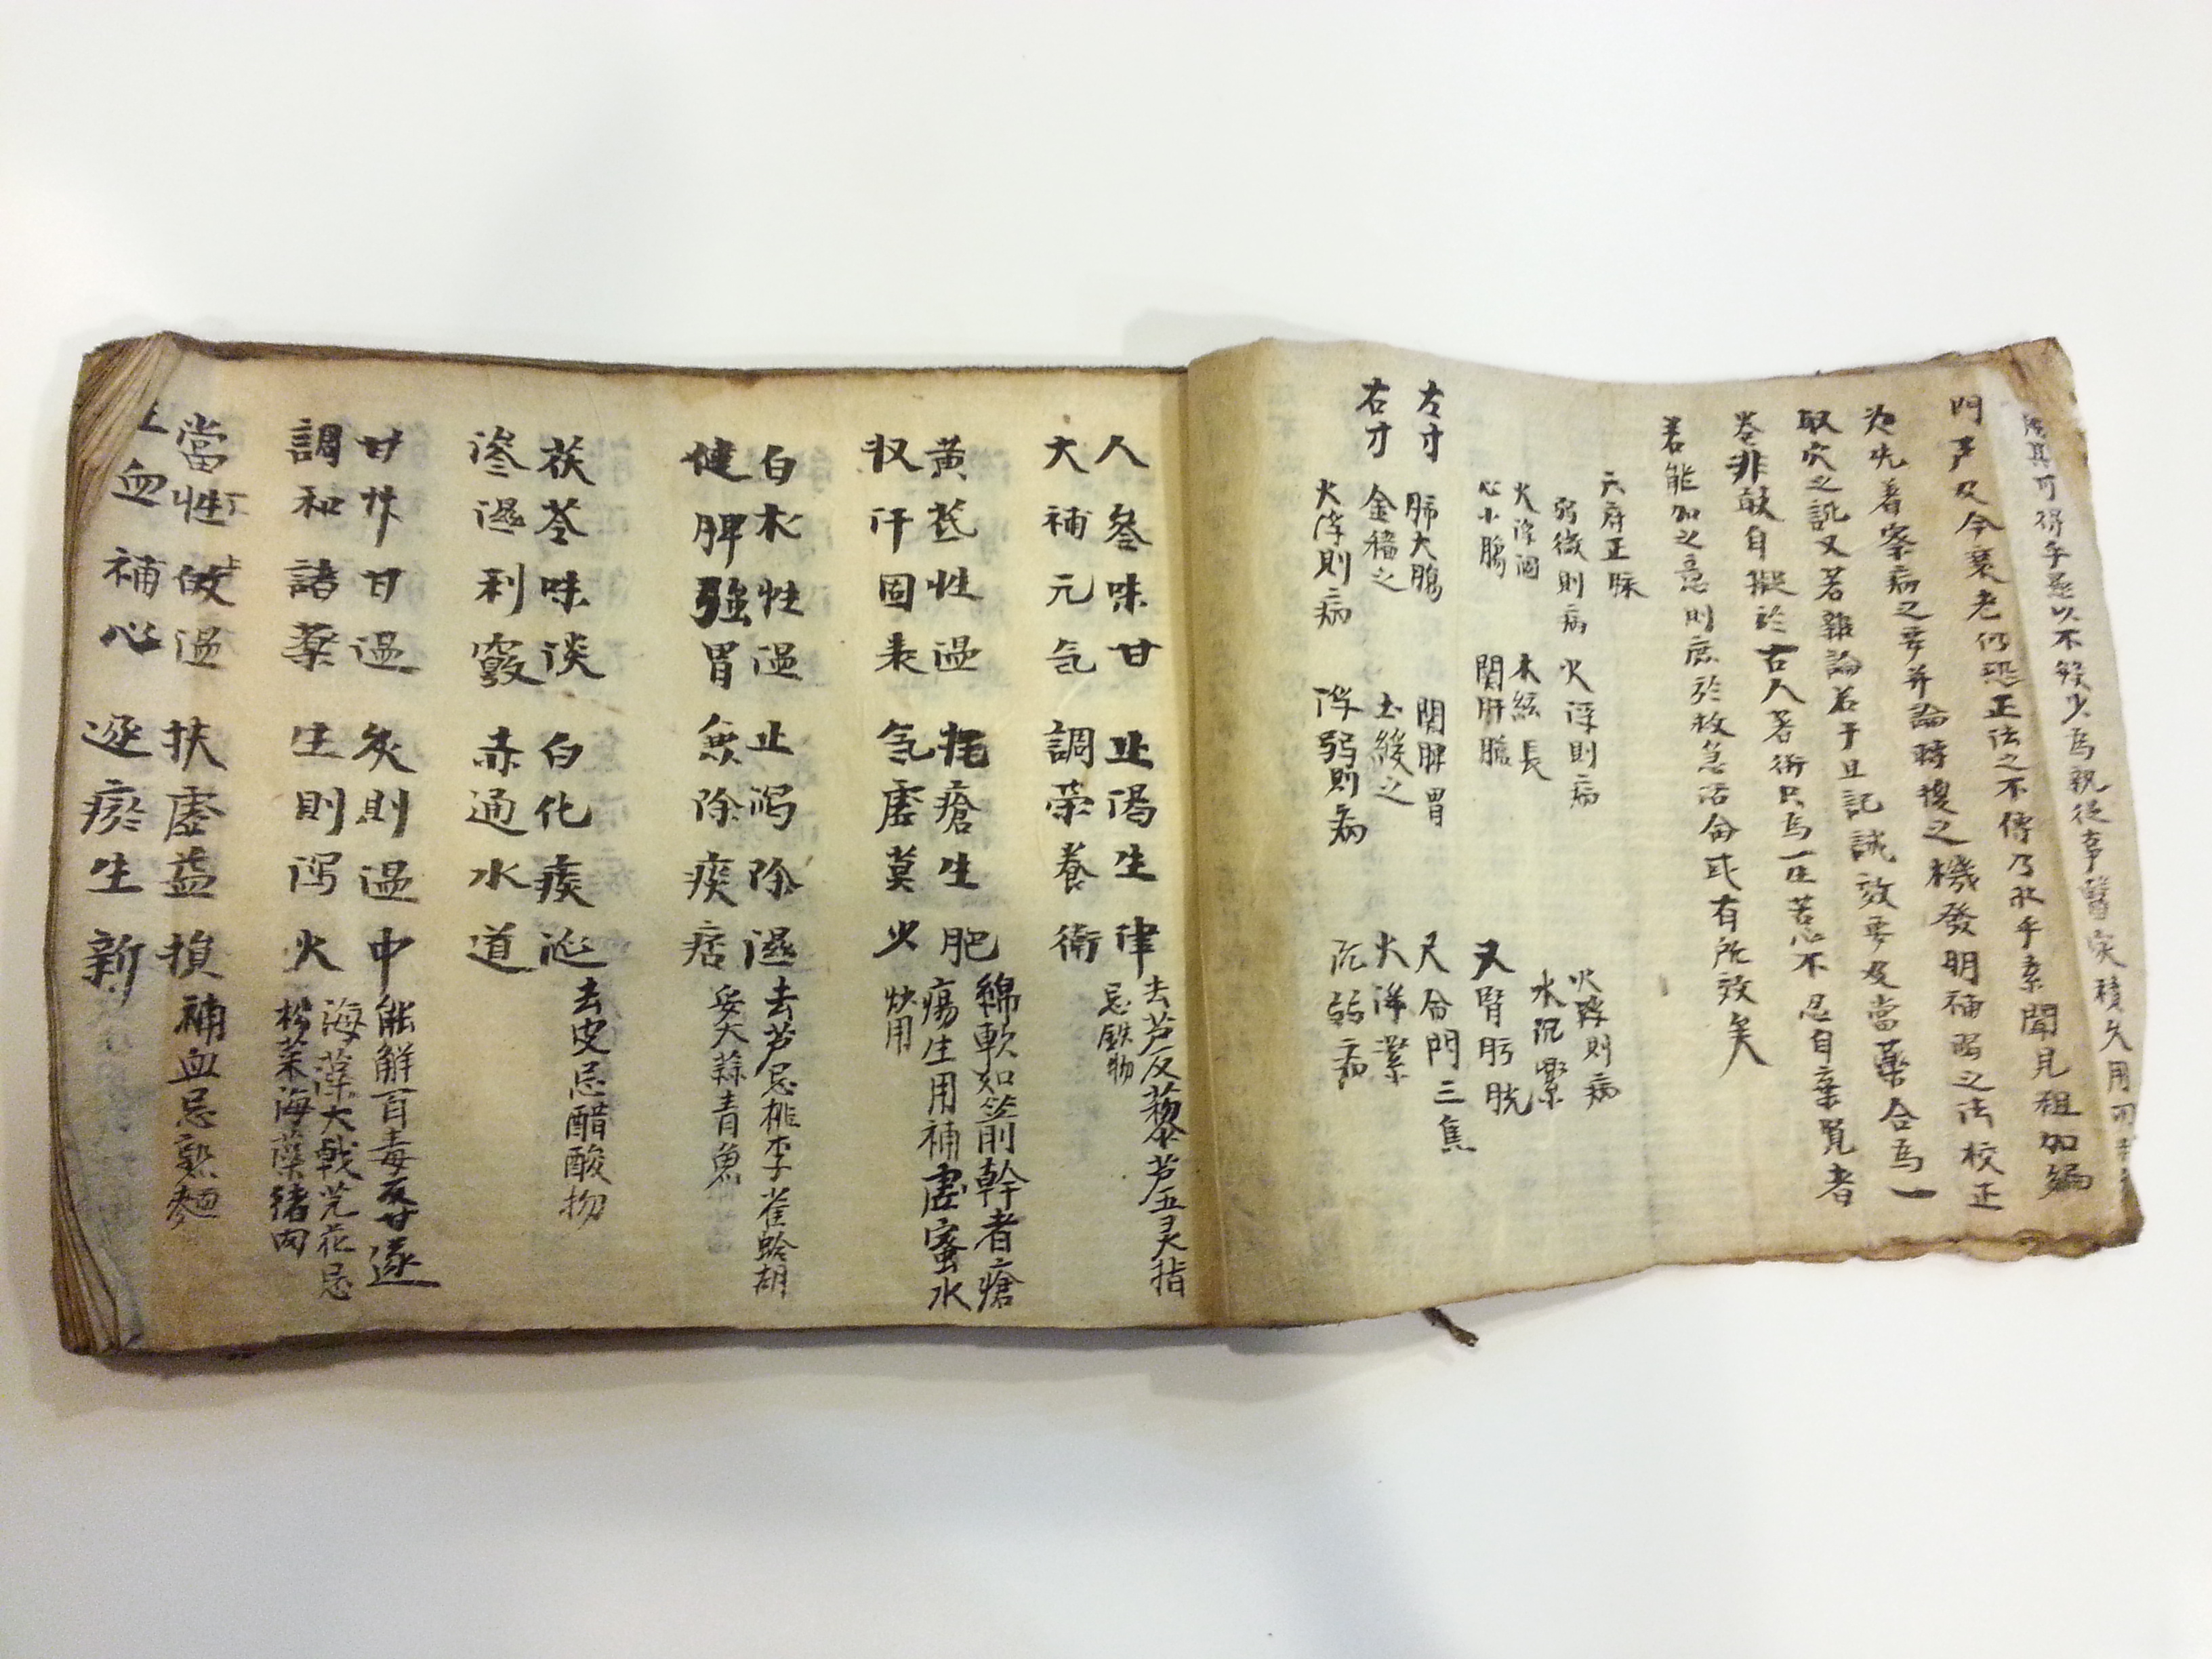 門戶及今衰老仍恐正法之不傳乃於手素聞見粗加編
為先著察病之要并論時復之機發明補瀉之法校正
取穴之訛又著雜論若干且記誠效要及當藥合為一
卷非敢自擬於古人著術只為一生苦心不忍自棄覽者
若能加之意則庶於救急活命或有所效矣
六府正脉
弱微則病 火浮則病 火降則病
火浮洞 木絃長 水沉緊
左寸 心小腸 関肝膽 又腎膀胱
右寸 肺大腸 関脾胃 尺命門三焦
金穡之 土緩之 火洋緊
火浮則病 浮弱則病 沉弱病
人參味甘 止渴生津 去芦反藜芦五灵指
大補元気 調荣養衛 忌鉄物
黄芪性温 托瘡生肥 綿軟如箭幹者瘡
収汗固表 氣虚莫少 瘍生用補虚蜜水
炒用
白术性温 止瀉除濕 去芦忌桃李雀蛤胡
健脾强胃 兼除痰痞 妥大蒜青魚
茯苓味淡 白化痰涎 去皮忌醋酸物
滲濕利竅 赤通水道
甘艸甘温 灸則温中 能觧百毒反甘遂
調和諸藥 生則瀉火 海藻大戟芫花忌
松菜海藻猪肉
當性 温 扶虚益損 補血忌熟麵
血補心 逐瘀生新